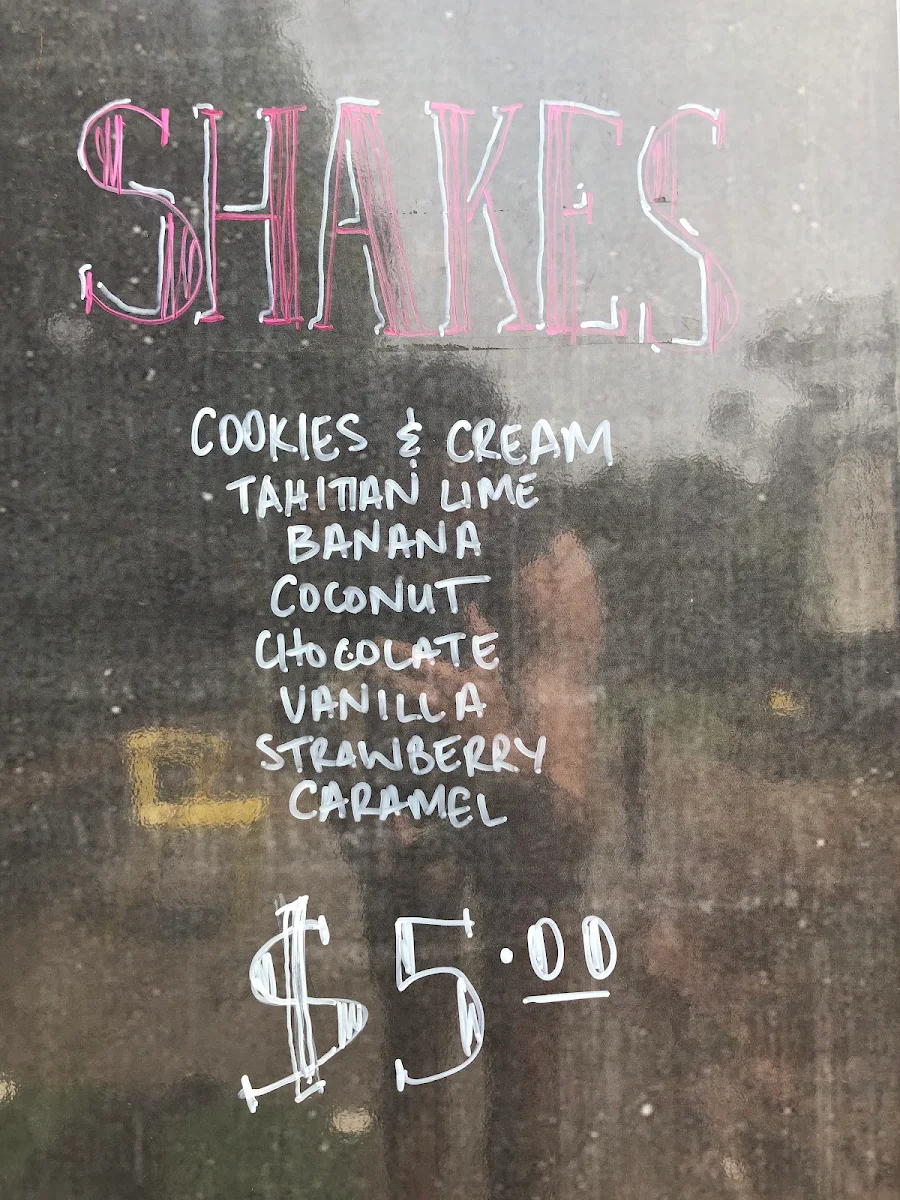 SHAKES
COOKIES & CREAM
TAHITIAN LIME
BANANA
COCONUT
CHOCOLATE
VANILLA
STRAWBERRY
CARAMEL
$5.00